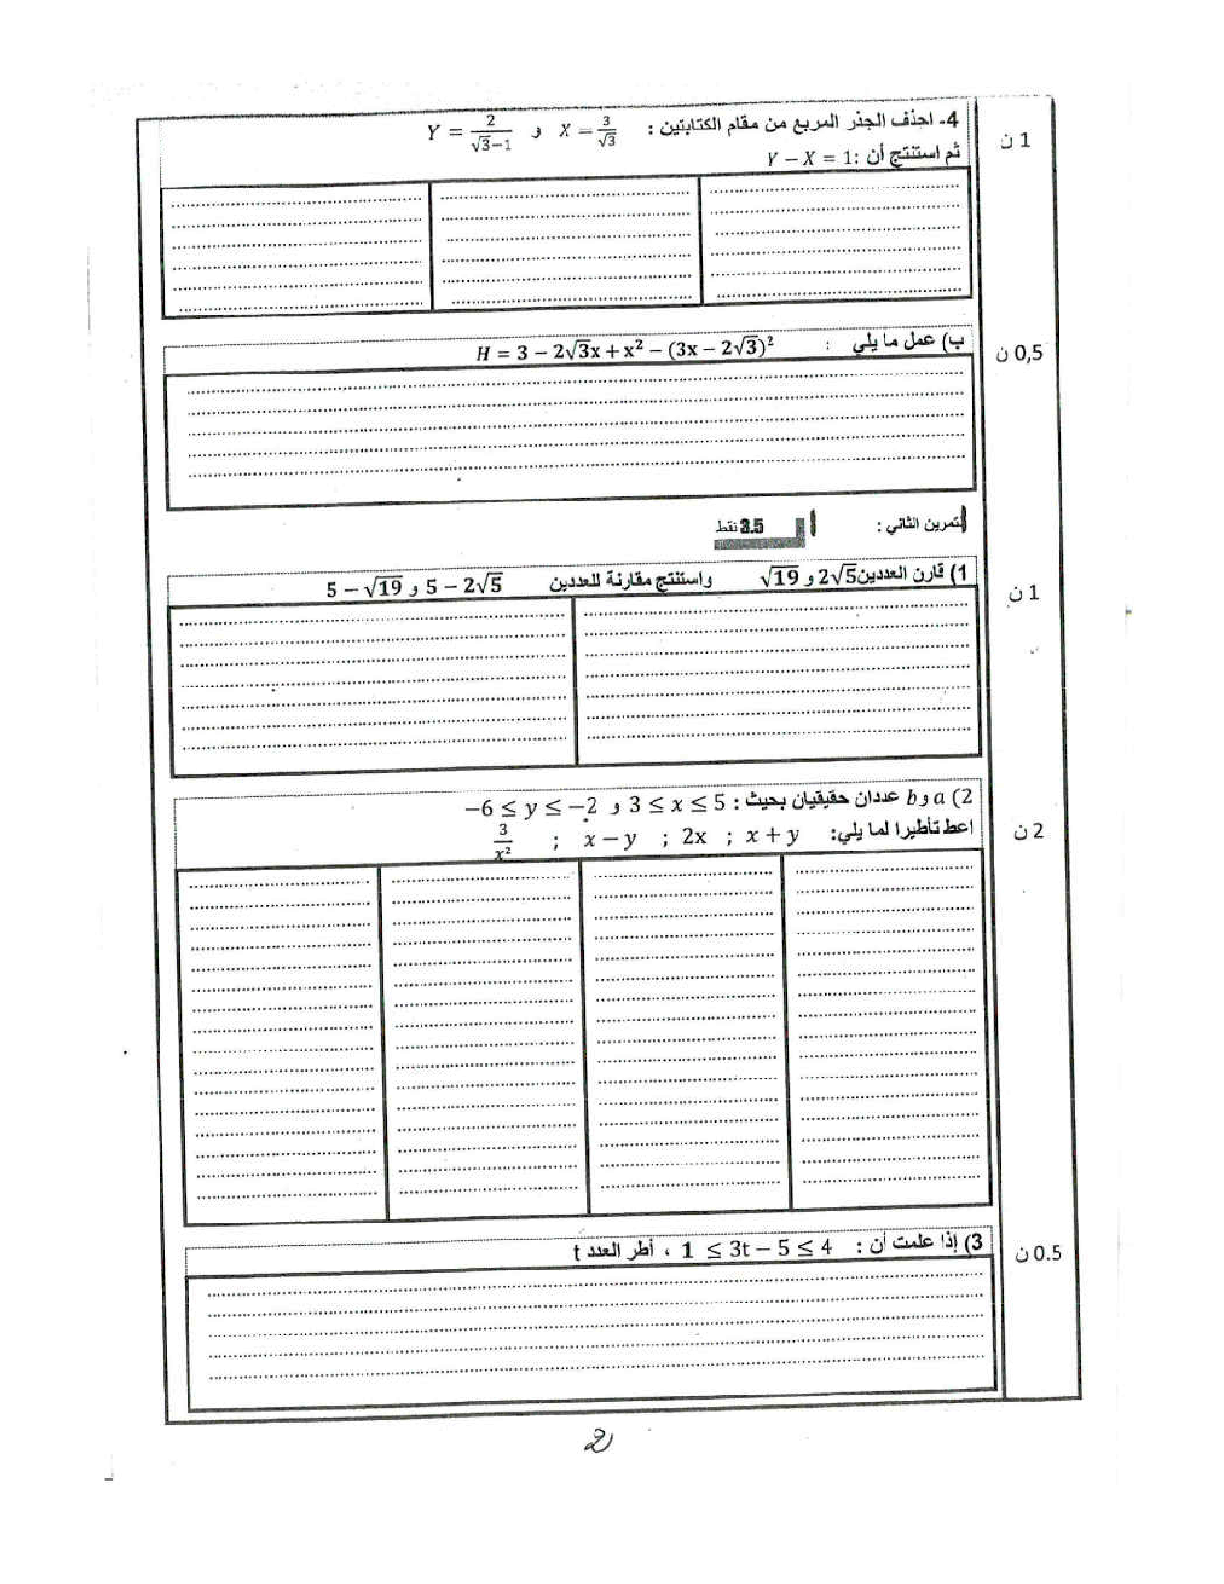 4- احذف الجذر المربع من مقام الكتابتين : X = 3/√3 و Y = 2/(√3−1)
1 ن
ثم استنتج أن : Y − X = 1
ب) عمل ما يلي : H = 3 − 2√3x + x² − (3x − 2√3)²
0,5 ن
التمرين الثاني : 3.5 نقط
1) قارن العددين 2√5 و √19 واستنتج مقارنة للعددين 5 − 2√5 و 5 − √19
1 ن
2) a و b عددان حقيقيان بحيث : 3 ≤ x ≤ 5 و −6 ≤ y ≤ −2
اعط تأطيرا لما يلي: x + y ; 2x ; x − y ; 3/x²
2 ن
3) إذا علمت أن : 1 ≤ 3t − 5 ≤ 4 ، أطر العدد t
0.5 ن
2